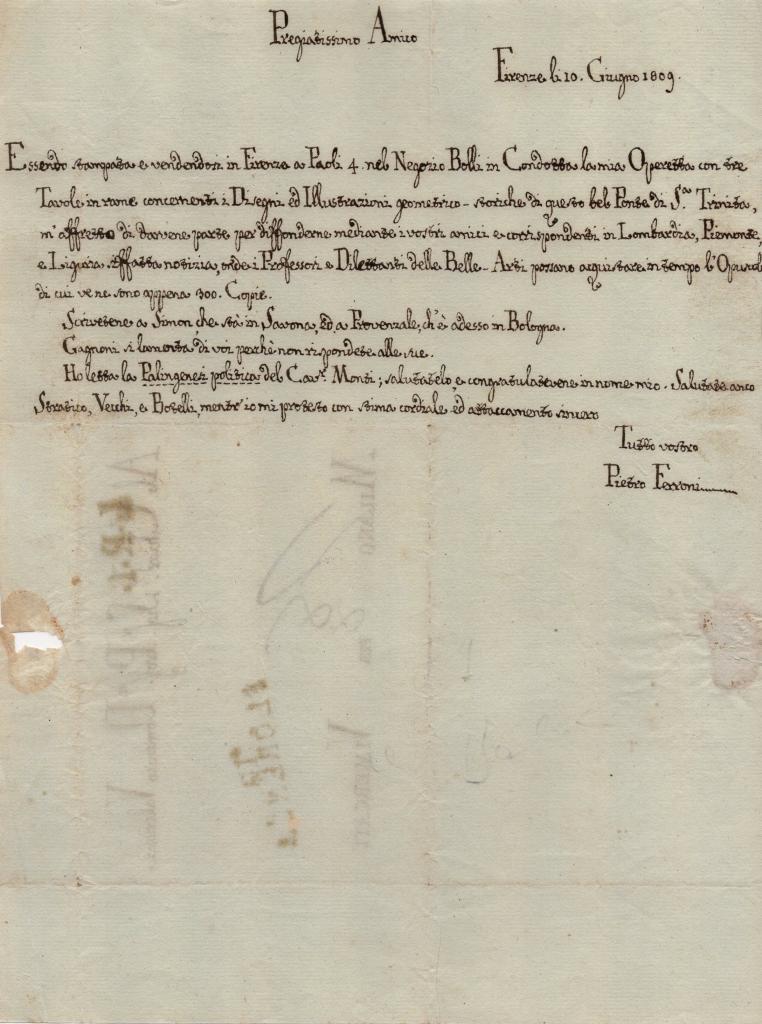 Pregiatissimo Amico
Firenze li 10. Giugno 1809.
Essendo stampata e vendendosi in Firenze a Paoli 4. nel Negozio Bolli in Condotta la mia Operetta con tre
Tavole in rame concernenti i Disegni ed Illustrazioni geometrico-storiche di questo bel Ponte di S.ª Trinita,
m'affretto di darvene parte per diffonderne mediante i vostri amici e corrispondenti in Lombardia, Piemonte,
e Liguria siffatta notizia, onde i Professori e Dilettanti delle Belle-Arti possano acquistare in tempo l'Opuscol
di cui ve ne sono appena 300. Copie.
Scrivetene a Simon, che stà in Savona, ed a Provenzale, ch'è adesso in Bologna.
Gagnoni si lamenta di voi perchè non rispondete alle sue.
Ho letta la Palingenesi politica del Cav.r Monti; salutatelo, e congratulatevene in nome mio. Salutate anco
Stratico, Vecchi, e Botelli, mentr'io mi protesto con stima cordiale ed attaccamento sincero
Tutto vostro
Pietro Ferroni